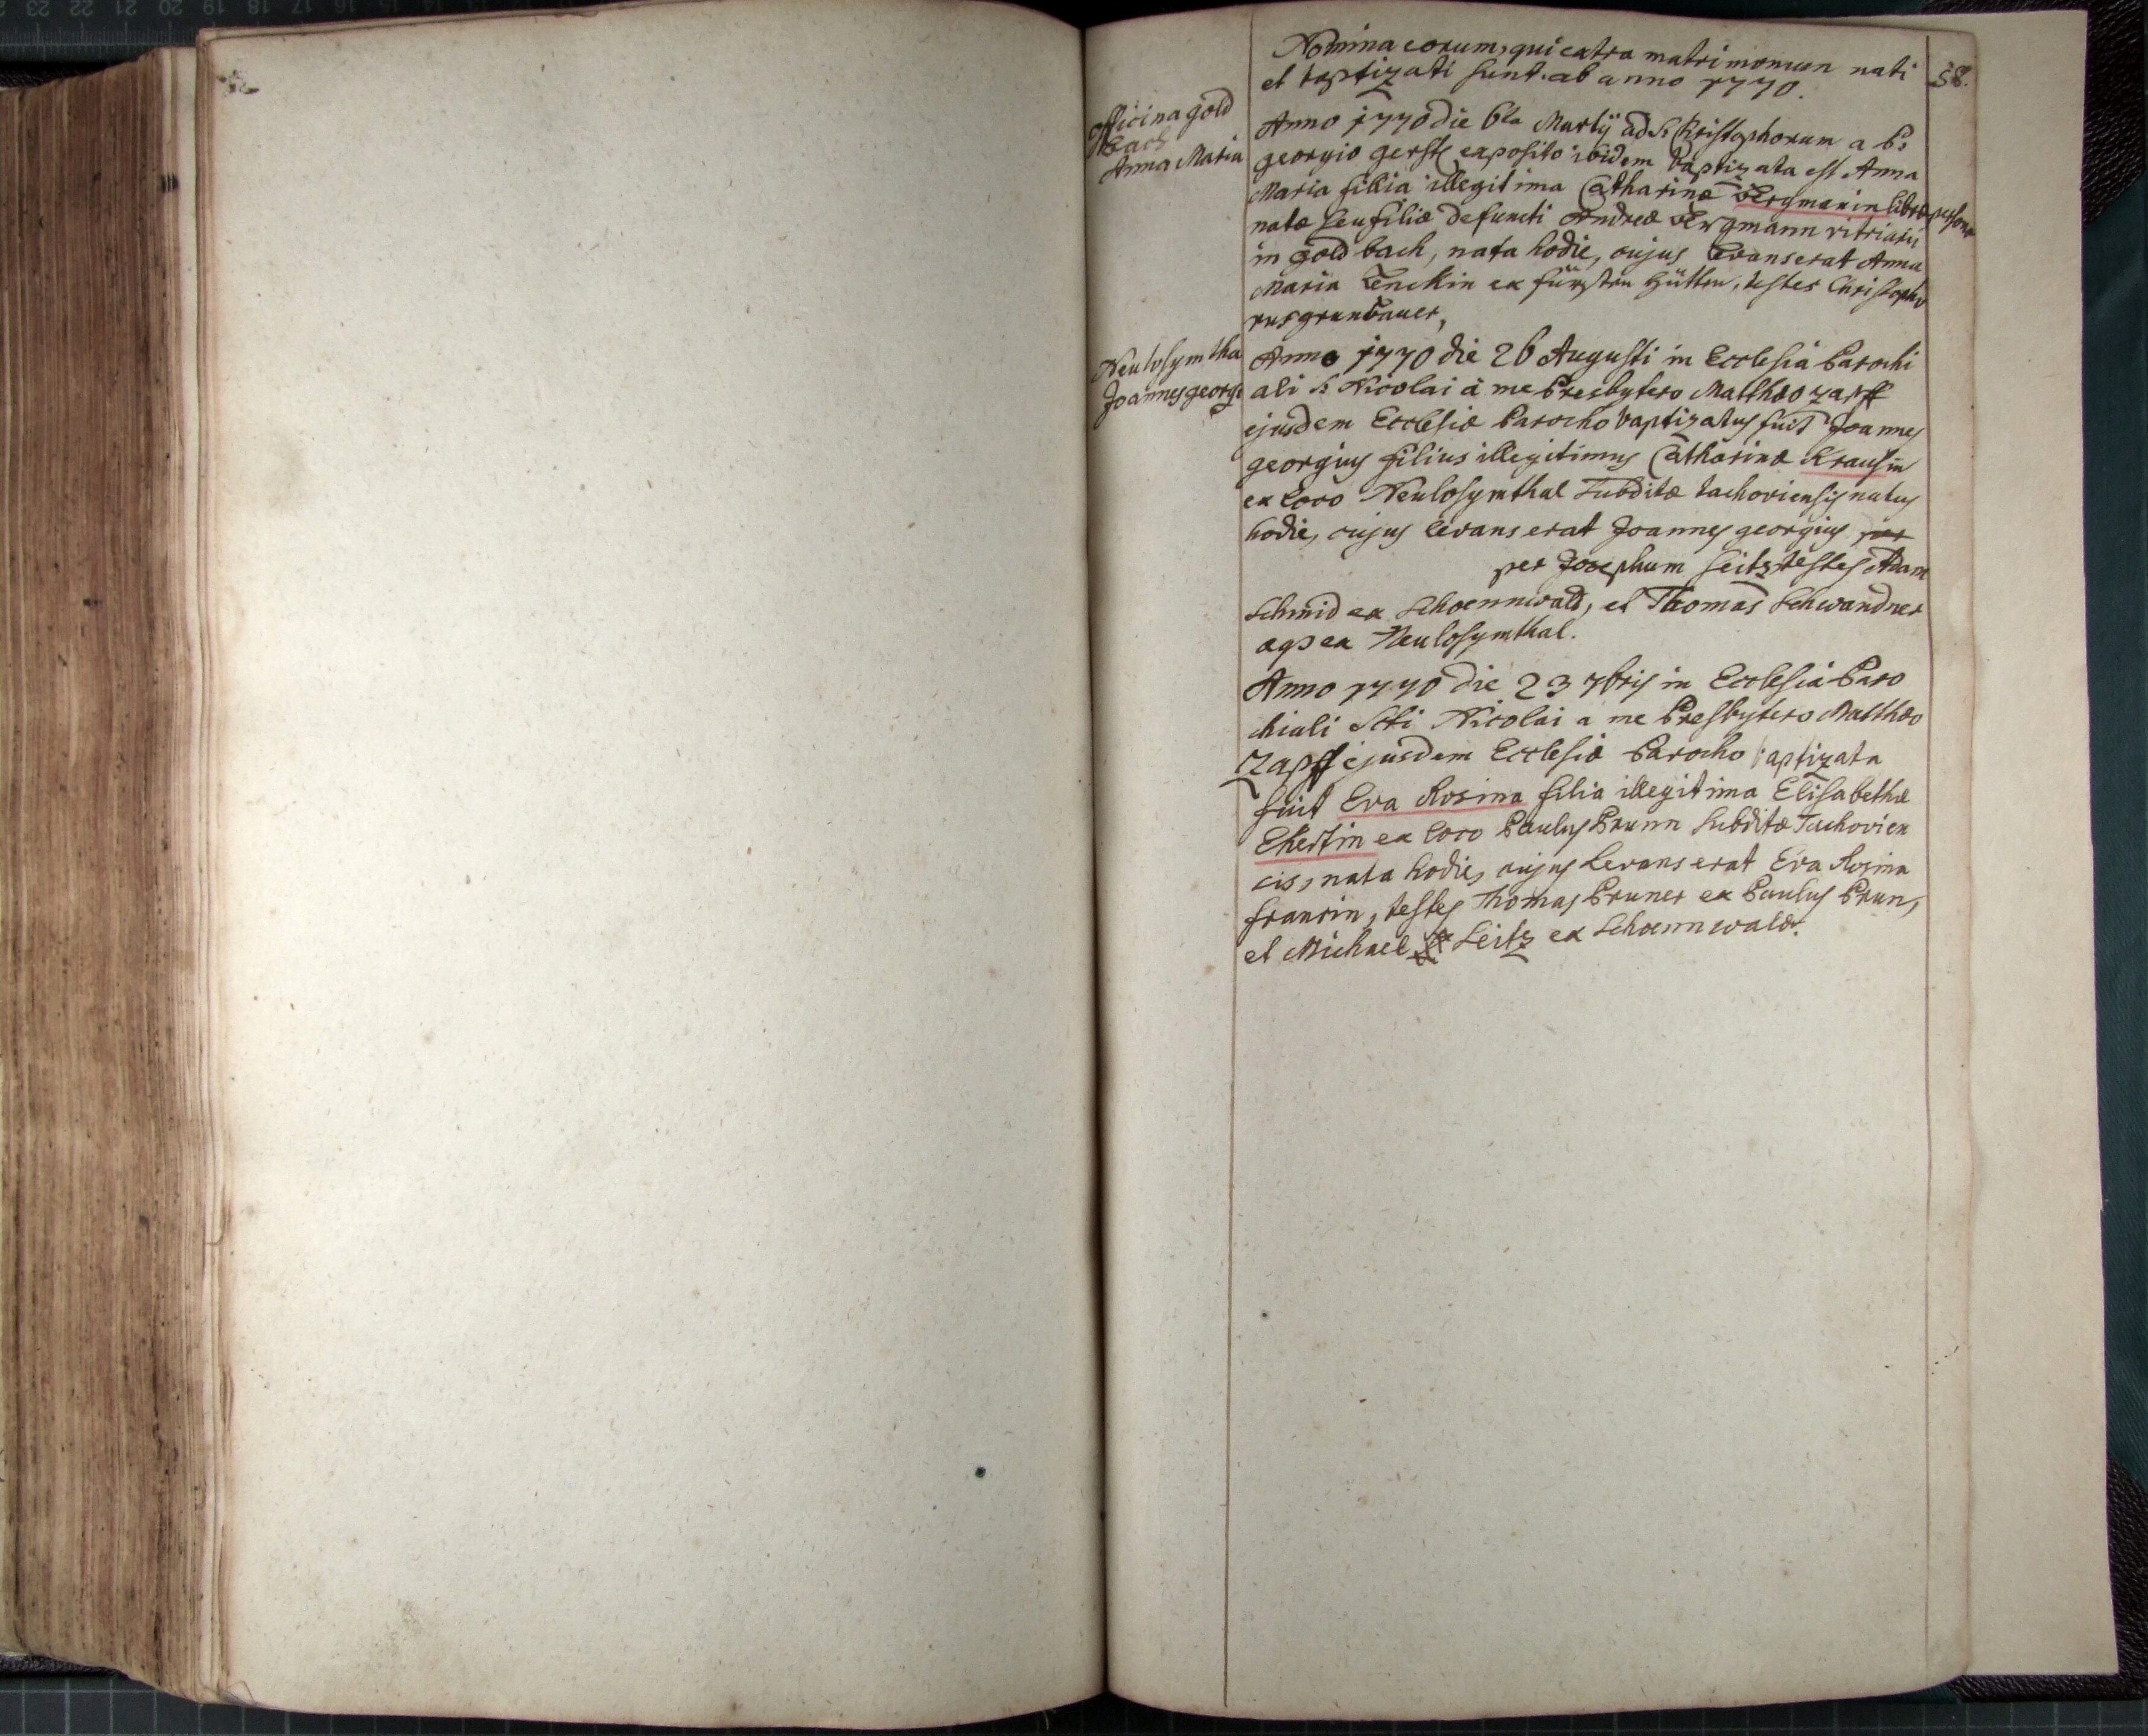 Nomina eorum, qui extra matrimonium nati
et baptizati sunt. ab anno 1770.
58.
officina gold
bach
Anna Maria
Anno 1770 die 6ta Martÿ ad S: Kristophorum a P:
georgio gerstl exposito ibidem baptizata est Anna
Maria fillia illegitima Catharinæ Bergmanin liberæ personæ
natæ seu filiæ defuncti Andreæ Bergmann vitriarii
in gold bach, nata hodie, cujus levans erat Anna
Maria Lenckin ex fürsten hütten, testes Christopho
rus grunbauer,
Neulosymtha
Joannes georgi
Anno 1770 die 26 Augusti in Ecclesiâ Parochi
ali S: Nicolai à me Presbytero Matthæo zapff
ejusdem Ecclesiæ Parocho baptizatus fuit Joannes
georgius filius illegitimus Catharinæ Krausin
ex loco Neulosymthal Subditæ tachoviensis natus
hodie, cujus levans erat Joannes georgius per
per Josephum Seitz, testes Adam
Schmid ex Schoennwald, et Thomas Schwandner
ex Neulosymthal.
Anno 1770 die 23 7bris in Ecclesiâ Paro
chiali Scti Nicolai a me Presbytero Matthæo
Zapff ejusdem Ecclesiæ Parocho baptizata
fuit Eva Rosina filia illegitima Elisabethæ
Ekertin ex loco Paulus Brunn Subditæ Tachovien
cis, nata hodie, cujus Levans erat Eva Rosina
francin, testes Thomas Pruner ex Paulus Brun,
et Michael Seitz ex Schoennwald.